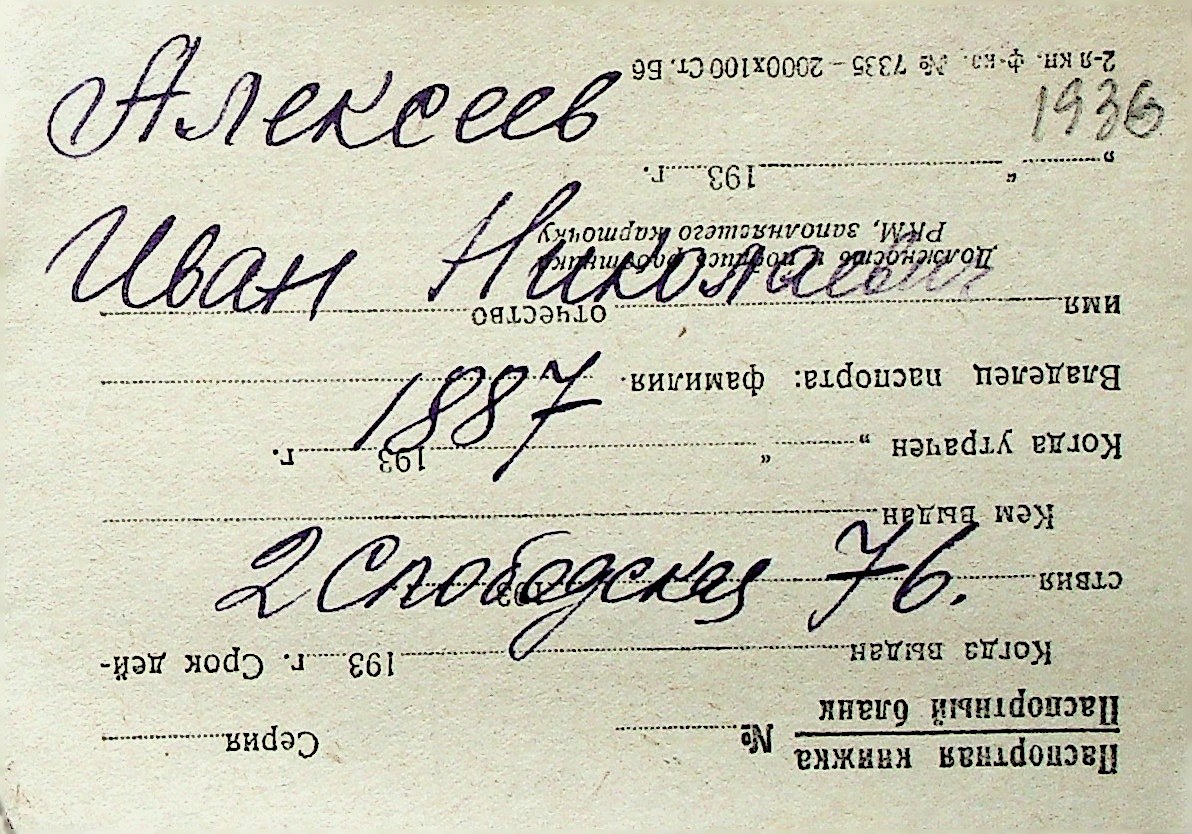 Алексеев
Иван Николаевич
1887
2 Слободская 76.
1936
Паспортная книжка
Паспортный бланк
№ Серия
Когда выдан 193 г. Срок дей-
ствия 193
Кем выдан
Когда утрачен „ “ 193 г.
Владелец паспорта: фамилия
имя отчество
Должность и подпись работника
РКМ, заполнявшего карточку
„ “ 193 г.
2-я кн. ф-ка. № 7335 — 2000х100 Ст. Б6